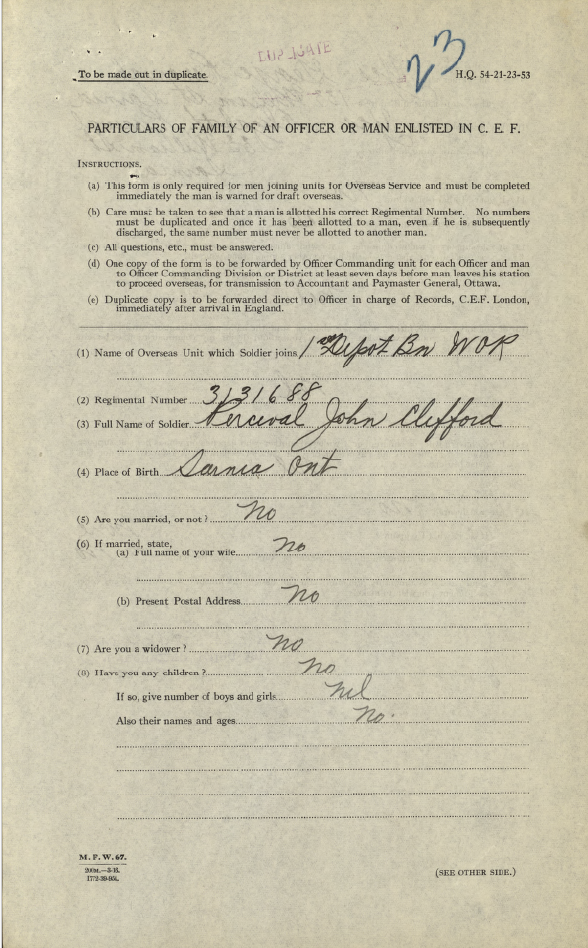 DUPLICATE
23
To be made out in duplicate.
H.Q. 54-21-23-53
PARTICULARS OF FAMILY OF AN OFFICER OR MAN ENLISTED IN C. E. F.
INSTRUCTIONS.
(a) This form is only required for men joining units for Overseas Service and must be completed
immediately the man is warned for draft overseas.
(b) Care must be taken to see that a man is allotted his correct Regimental Number. No numbers
must be duplicated and once it has been allotted to a man, even if he is subsequently
discharged, the same number must never be allotted to another man.
(c) All questions, etc., must be answered.
(d) One copy of the form is to be forwarded by Officer Commanding unit for each Officer and man
to Officer Commanding Division or District at least seven days before man leaves his station
to proceed overseas, for transmission to Accountant and Paymaster General, Ottawa.
(e) Duplicate copy is to be forwarded direct to Officer in charge of Records, C.E.F. London,
immediately after arrival in England.
(1) Name of Overseas Unit which Soldier joins 1st Depot Bn WOR
(2) Regimental Number 3131688
(3) Full Name of Soldier Perceval John Clifford
(4) Place of Birth Sarnia Ont
(5) Are you married, or not? No
(6) If married, state,
(a) Full name of your wife No
(b) Present Postal Address No
(7) Are you a widower? No
(8) Have you any children? No
If so, give number of boys and girls nil
Also their names and ages No.
M. F. W. 67.
200M.—3-16.
1772-39-951.
(SEE OTHER SIDE.)